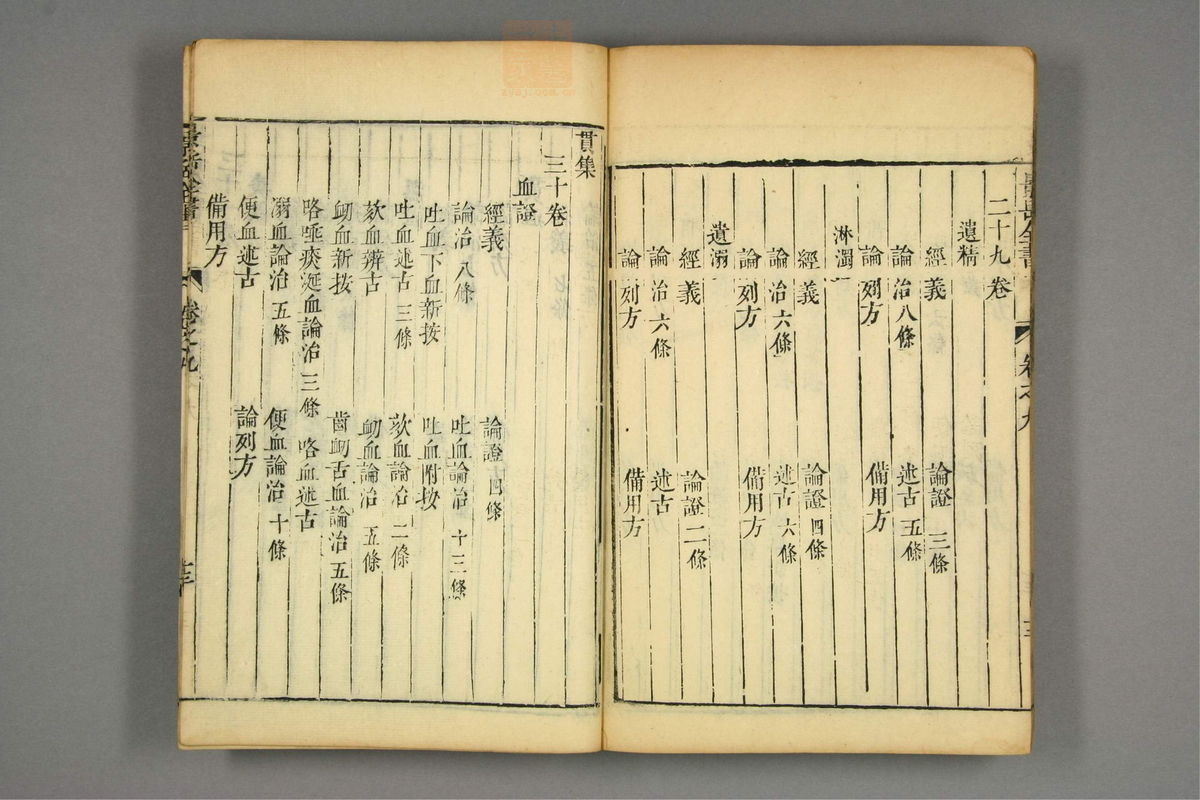 二十九卷
遺精
經義 論證 三條
論治 八條 述古 五條
論列方 備用方
淋濁
經義 論證 四條
論治 六條 述古 六條
論列方 備用方
遺溺
經義 論證 二條
論治 六條 述古
論列方 備用方
貫集
三十卷
血證
經義 論證 四條
論治 八條 吐血論治 十三條
吐血下血新按 吐血附按
吐血述古 三條 欬血論治 二條
欬血辨古 衂血論治 五條
衂血新按 齒衂舌血論治 五條
咯唾痰涎血論治 三條 咯血述古
溺血論治 五條 便血論治 十條
便血述古 論列方
備用方
卷之九